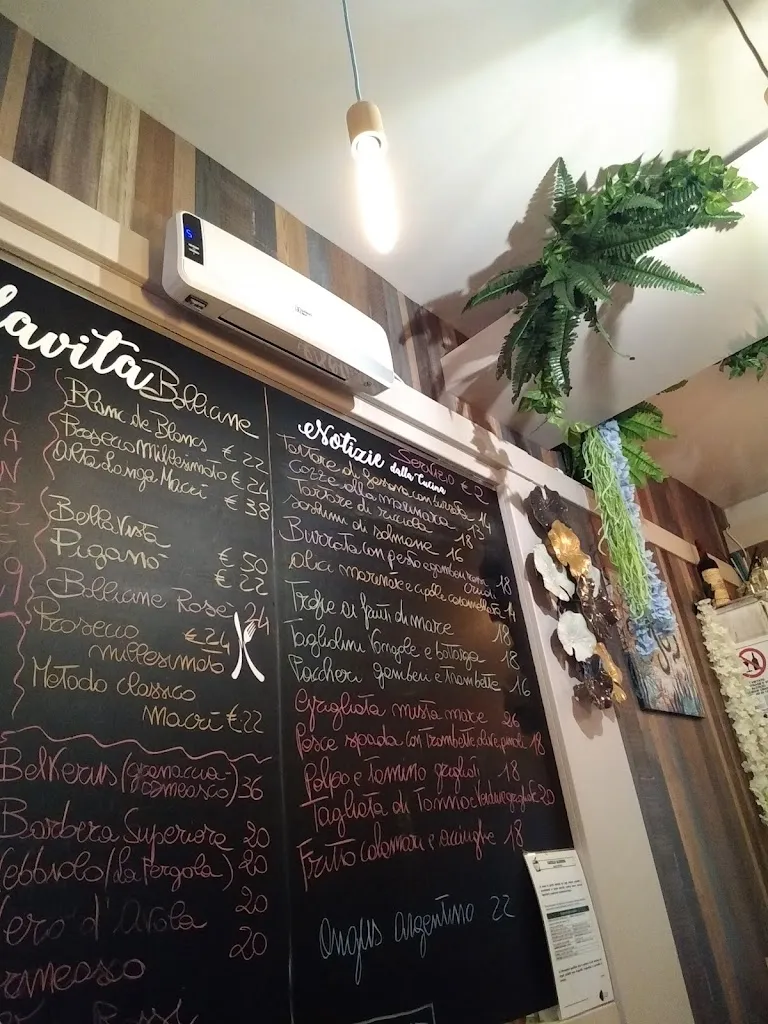 lavita
Bollicine
Blanc de Blancs € 22
Prosecco Millesimato € 24
Alta Langa Macrì € 38
Bellavista € 50
Pigato € 22
Bollicine Rosè 24
Prosecco € 24
millesimato
Metodo classico
Macrì € 22
(granaccia-
ormeasco) 36
Barbera Superiore 20
(La Pergola) 20
Nero d'Avola 20
20
ormeasco
Notizie dalla Cucina
Servizio € 2
Tartare di gambero con burrata 14
Cozze alla marinara 13
Tartare di ricciola
di salmone 16
Burrata con pesto e gamberi
crudi 18
alici marinate e cipolle caramellate 14
Trofie ai frutti di mare 18
Tagliolini Vongole e bottarga 18
Paccheri gamberi e trombette 16
Grigliata mista mare 26
Pesce spada con trombette olive, pinoli 18
Polpo e Tomino grigliati 18
Tagliata di Tonno e Verdure grigliate 20
Fritto calamari e acciughe 18
Angus argentino 22